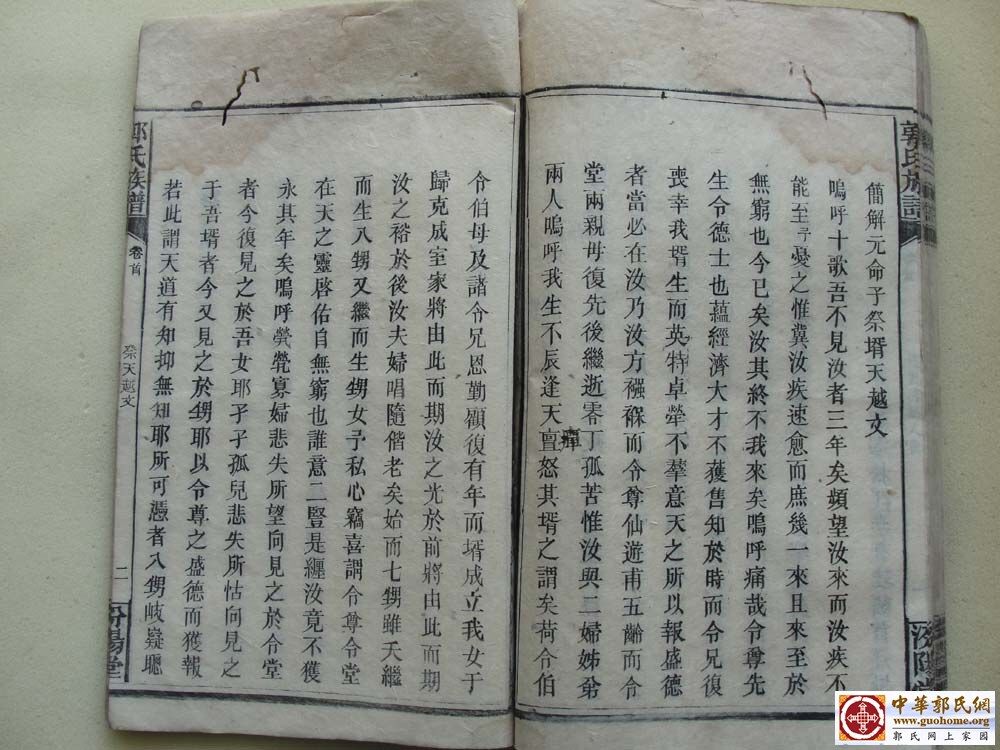 郭氏族譜
簡解元命子祭壻天越文
嗚呼十歌吾不見汝者三年矣頻望汝來而汝疾不
能至予憂之惟冀汝疾速愈而庶幾一來且來至於
無窮也今已矣汝其終不我來矣嗚呼痛哉令尊先
生令德士也蘊經濟大才不獲售知於時而令兄復
喪幸我壻生而英特卓犖不羣意天之所以報盛德
者當必在汝乃汝方襁褓而令尊仙遊甫五齡而令
堂兩親毋復先後繼逝零丁孤苦惟汝與二婦姊弟
兩人嗚呼我生不辰逢天亶怒其壻之謂矣荷令伯
令伯母及諸令兄恩勤顧復有年而壻成立我女于
歸克成室家將由此而期汝之光於前將由此而期
汝之裕於後汝夫婦唱隨偕老矣始而七甥雖天繼
而生八甥又繼而生甥女予私心竊喜謂令尊令堂
在天之靈啓佑自無窮也誰意二豎是纏汝竟不獲
永其年矣嗚呼煢煢寡婦悲失所望向見之於令堂
者今復見之於吾女耶孑孑孤兒悲失所怙向見之
于吾壻者今又見之於甥耶以令尊之盛德而獲報
若此謂天道有知抑無知耶所可憑者八甥岐嶷聰
郭氏族譜
卷首
祭天越文
二
汾陽堂
汾陽堂
中華郭氏網
www.guohome.org
郭氏网上家园